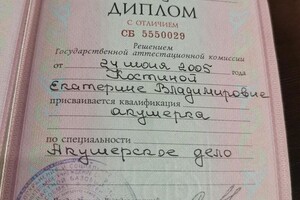 ДИПЛОМ
С ОТЛИЧИЕМ
СБ 5550029
Решением
Государственной аттестационной комиссии
от 24 июня 2005 года
Костиной
Екатерине Владимировне
присваивается квалификация
акушерка
по специальности
Акушерское дело